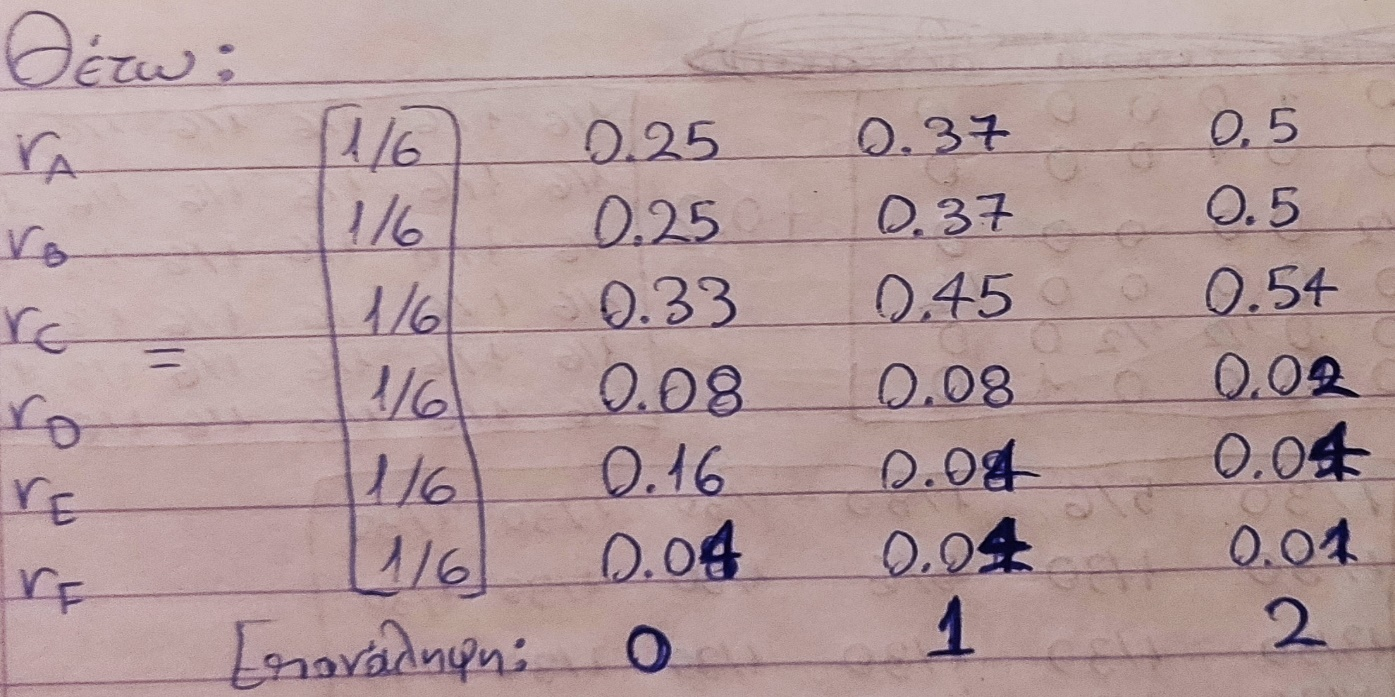 Θέτω:
r_A 1/6 0.25 0.37 0.5
r_B 1/6 0.25 0.37 0.5
r_C 1/6 0.33 0.45 0.54
=
r_D 1/6 0.08 0.08 0.02
r_E 1/6 0.16 0.04 0.04
r_F 1/6 0.04 0.04 0.01
Επανάληψη: 0 1 2